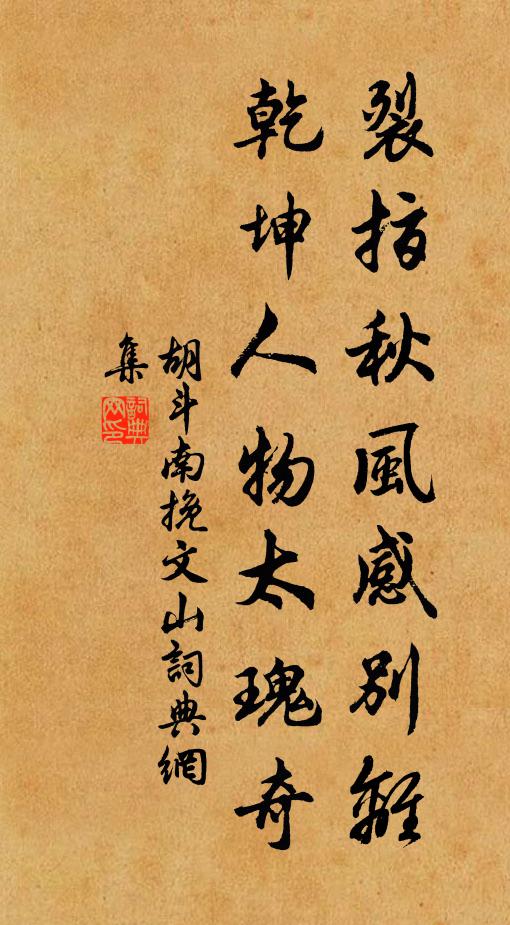 裂指秋風感別離
乾坤人物太瑰奇
胡斗南挽文山詞典網
集
詞典網印